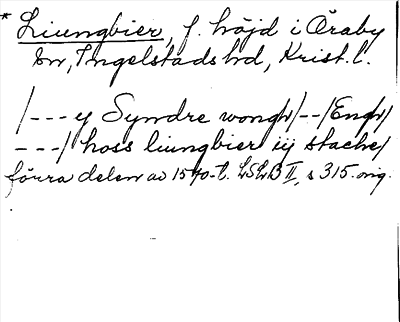 * Liungbier, f. höjd i Öraby
sn, Ingelstads hd, Krist. l.
/--- y Syndre wongh/--/Engh/
---/ hoss liungbier iij stacher/
förra delen av 1570-t. LSLB II, s 315. orig.